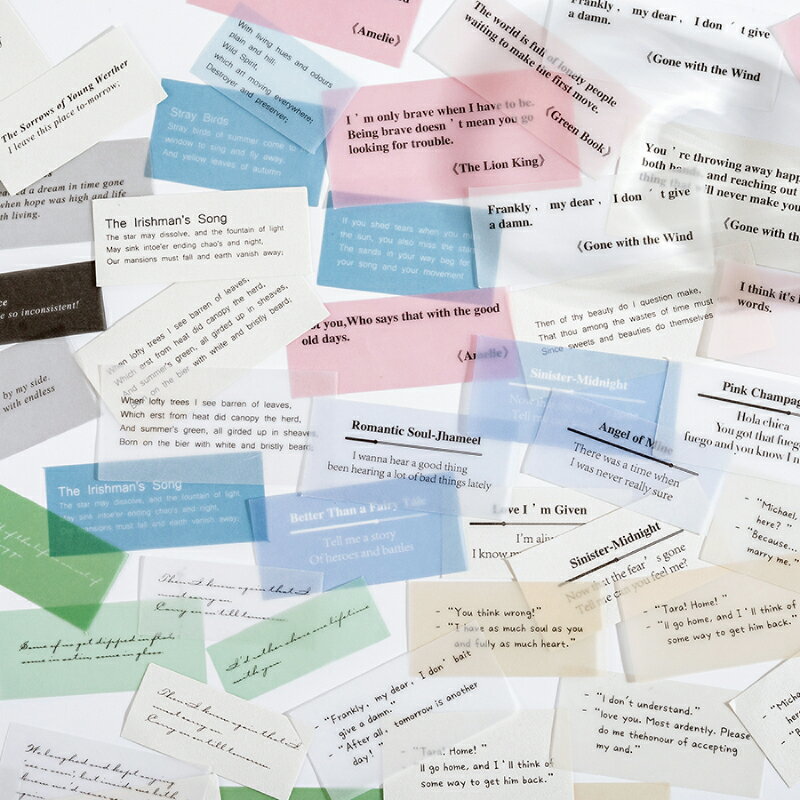 《Amelie》
With living hues and odours
plain and hill:
Wild Spirit,
which art moving everywhere;
Destroyer and preserver;
The world is full of lonely people
waiting to make the first move.
《Green Book》
Frankly , my dear , I don ´ t give
a damn.
《Gone with the Wind
The Sorrows of Young Werther
I leave this place to-morrow,
Stray Birds
Stray birds of summer come to
window to sing and fly away.
And yellow leaves of autumn
I ' m only brave when I have to be.
Being brave doesn ' t mean you go
looking for trouble.
《The Lion King》
You ' re throwing away happ
both hands, and reaching out
thing that will never make you
《Gone with the
a dream in time gone
when hope was high and life
th living.
The Irishman's Song
The star may dissolve, and the fountain of light
May sink intoe'er ending chao's and night,
Our mansions must fall and earth vanish away;
If you shed tears when you mis
the sun, you also miss the stars
The sands in your way beg for
your song and your movement
Frankly , my dear , I don ´ t give
a damn.
《Gone with the Wind
ce
e so inconsistent!
When lofty trees I see barren of leaves,
Which erst from heat did canopy the herd,
And summer's green, all girded up in sheaves,
Born on the bier with white and bristly beard;
t you,Who says that with the good
old days.
《Amelie》
Then of thy beauty do I question make,
That thou among the wastes of time must
Since sweets and beauties do themselves
I think it's
words.
by my side.
with endless
When lofty trees I see barren of leaves,
Which erst from heat did canopy the herd,
And summer's green, all girded up in sheaves
Born on the bier with white and bristly beard
Sinister-Midnight
Now
Tell me
Pink Champag
Hola chica
You got that fuego
fuego and you know I n
Romantic Soul-Jhameel
I wanna hear a good thing
been hearing a lot of bad things lately
Angel of Mine
There was a time when
I was never really sure
The Irishman's Song
The star may dissolve, and the fountain of light
May sink intoe'er ending chao's and night,
mansions must fall and earth vanish away;
Better Than a Fairy Tale
Tell me a story
Of heroes and battles
Love I ' m Given
I'm aliv
I know m
Sinister-Midnight
Now that the fear ' s gone
Tell me can you feel me?
- "Michael,
here?"
- "Because...
marry me."
Then I know again that I
must carry on
Carry on till tomorrow
Some of us get dipped in flat,
some in satin, some in gloss
I'd rather share one lifetime
with you
- "You think wrong!"
- "I have as much soul as you
and fully as much heart."
- "Tara! Home! "
- "ll go home, and I ' ll think of
some way to get him back."
Then I know again that I
must carry on
Carry on till tomorrow
- "Frankly , my dear , I don ' bait
give a damn."
- "After all, tomorrow is another
day! "
- "I don't understand."
- "love you. Most ardently. Please
do me thehonour of accepting
my and."
- "Mic
her
- "B
m
We laughed and kept saying
- "Tara! Home! "
ll go home, and I ' ll think of
some way to get him back."